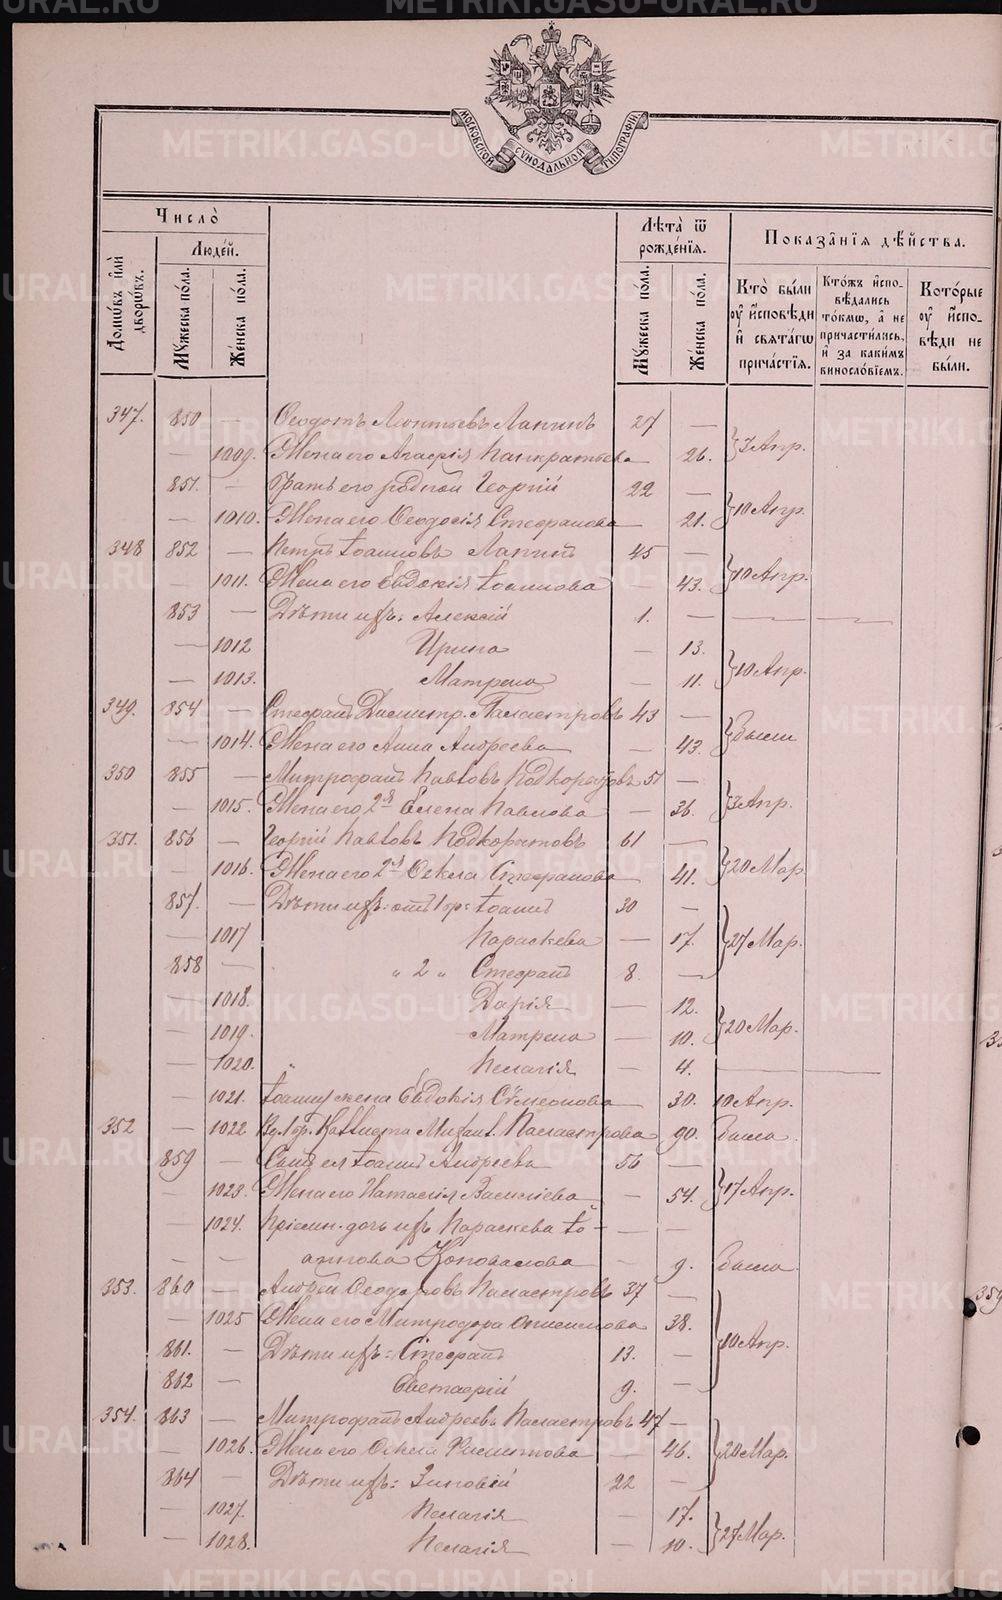 МОСКОВСКОЙ СѴНОДАЛЬНОЙ ТИПОГРАФІИ
Число̀
Лѣта̀ ѿ рожде́нїѧ.
Показа̑нїѧ дѣ́йства.
Домѡ́въ и҆лѝ дворѡ́въ.
Люде́й.
Мꙋ́жеска по́ла.
Же́нска по́ла.
Мꙋ́жеска по́ла.
Же́нска по́ла.
Кто̀ бы́ли ᲂу҆ и҆́сповѣди и҆ свѧта́гѡ прича́стїѧ.
Кто́жъ и҆спо-вѣ́дались то́кмѡ, а҆ не причасти́лись, и҆ за каки́мъ винословїемъ.
Кото́рые ᲂу҆ и҆́спо-вѣди не бы́ли.
347. 850 — Ѳеодотъ Леонтьевъ Лапинъ 27 —
— 1009. Жена его Агафія Панкратьева — 26. }3 Апр.
851. — Братъ его родной Георгій 22 —
— 1010. Жена его Ѳеодосія Стефанова — 21. }10 Апр.
348 852 — Петръ Іоанновъ Лапинъ 45 —
— 1011. Жена его Евдокія Іоаннова — 43. }10 Апр.
853 — Дѣти ихъ: Алексій 1. — — —
— 1012 Ирина — 13.
— 1013. Матрена — 11. }10 Апр.
349. 854 — Стефанъ Димитр. Паластровъ 43 —
— 1014. Жена его Анна Андреева — 43. }Были
350 855 — Митрофанъ Павловъ Подкорытовъ 51 —
— 1015. Жена его 2я Елена Павлова — 36. }3 Апр.
351. 856 — Георгій Павловъ Подкорытовъ 61 —
— 1016. Жена его 2я Ѳекла Стефанова — 41. }20 Мар.
857. — Дѣти ихъ: отъ 1 бр: Іоаннъ 30 —
— 1017 Параскева — 17. }27 Мар.
858 — „ 2 „ Стефанъ 8. —
— 1018. Дарія — 12.
— 1019. Матрена — 10. }20 Мар.
— 1020. „ Пелагія — 4. — —
— 1021. Іоанну жена Евдокія Сѵмеонова — 30. 10 Апр.
352 — 1022 Каллиста Михаил. Паластрова 90. Была
859 — Сынъ ея Іоаннъ Андреевъ 56 —
— 1023. Жена его Наталія Василіева — 54. }17 Апр.
— 1024. Пріемн. дочь ихъ Параскева Іо- — —
— — аннова Коновалова — 9. Была
353. 860 — Андрей Ѳеодоровъ Паластровъ 37 —
— 1025 Жена его Митродора Онисимова — 38.
861. — Дѣти ихъ: Стефанъ 13. — }10 Апр.
862 — Евстафій 9. —
354. 863 — Митрофанъ Андреевъ Паластровъ 47 —
— 1026. Жена его Ѳекла Филиппова — 46. }20 Мар.
864 — Дѣти ихъ: Зиновій 22 —
— 1027. Пелагія — 17.
— 1028. Пелагія — 10. }27 Мар.
METRIKI.GASO-URAL.RU